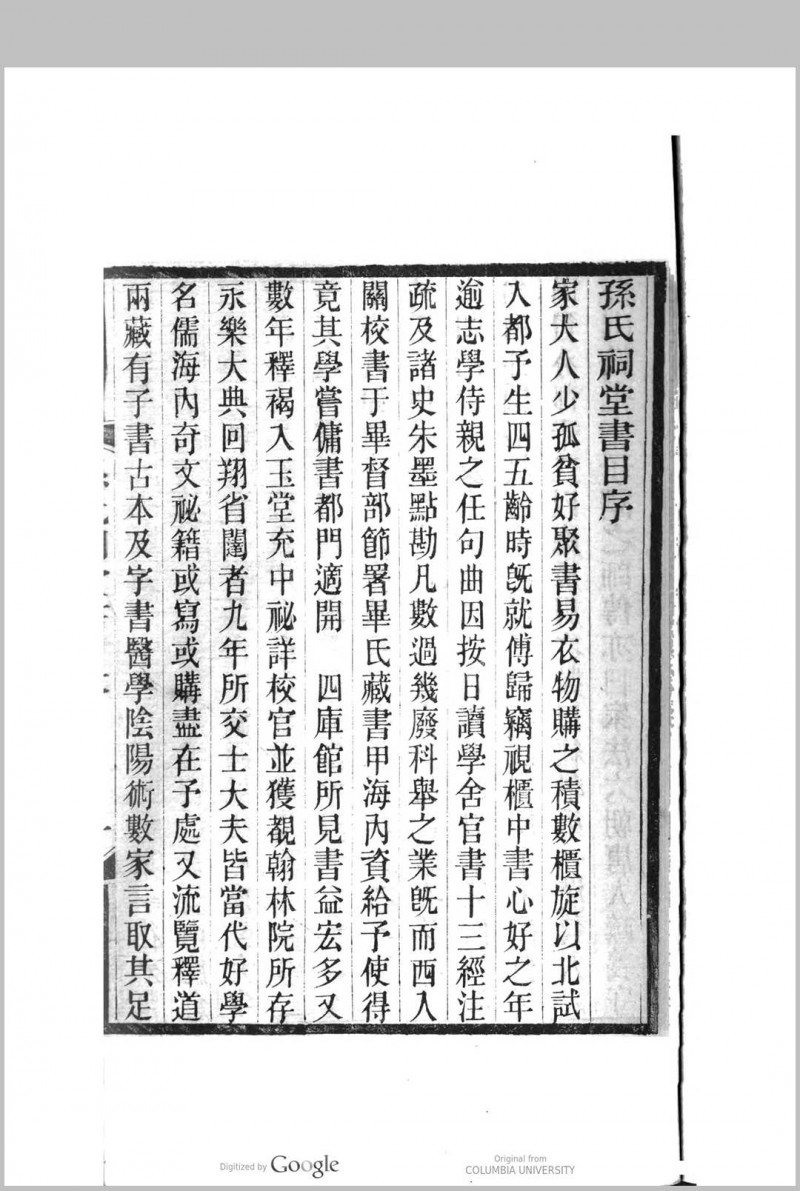 孫氏祠堂書目序
家大人少孤貧好聚書易衣物購之積數櫃旋以北試
入都予生四五齡時旣就傅歸竊視櫃中書心好之年
逾志學侍親之任句曲因按日讀學舍官書十三經注
疏及諸史朱墨點勘凡數過幾廢科舉之業旣而西入
關校書于畢督部節署畢氏藏書甲海內資給予使得
竟其學嘗傭書都門適開　四庫館所見書益宏多又
數年釋褐入玉堂充中祕詳校官並獲覩翰林院所存
永樂大典回翔省闥者九年所交士大夫皆當代好學
名儒海內奇文祕籍或寫或購盡在予處又流覽釋道
兩藏有子書古本及字書醫學陰陽術數家言取其足
Digitized by Google
Original from
COLUMBIA UNIVERSITY